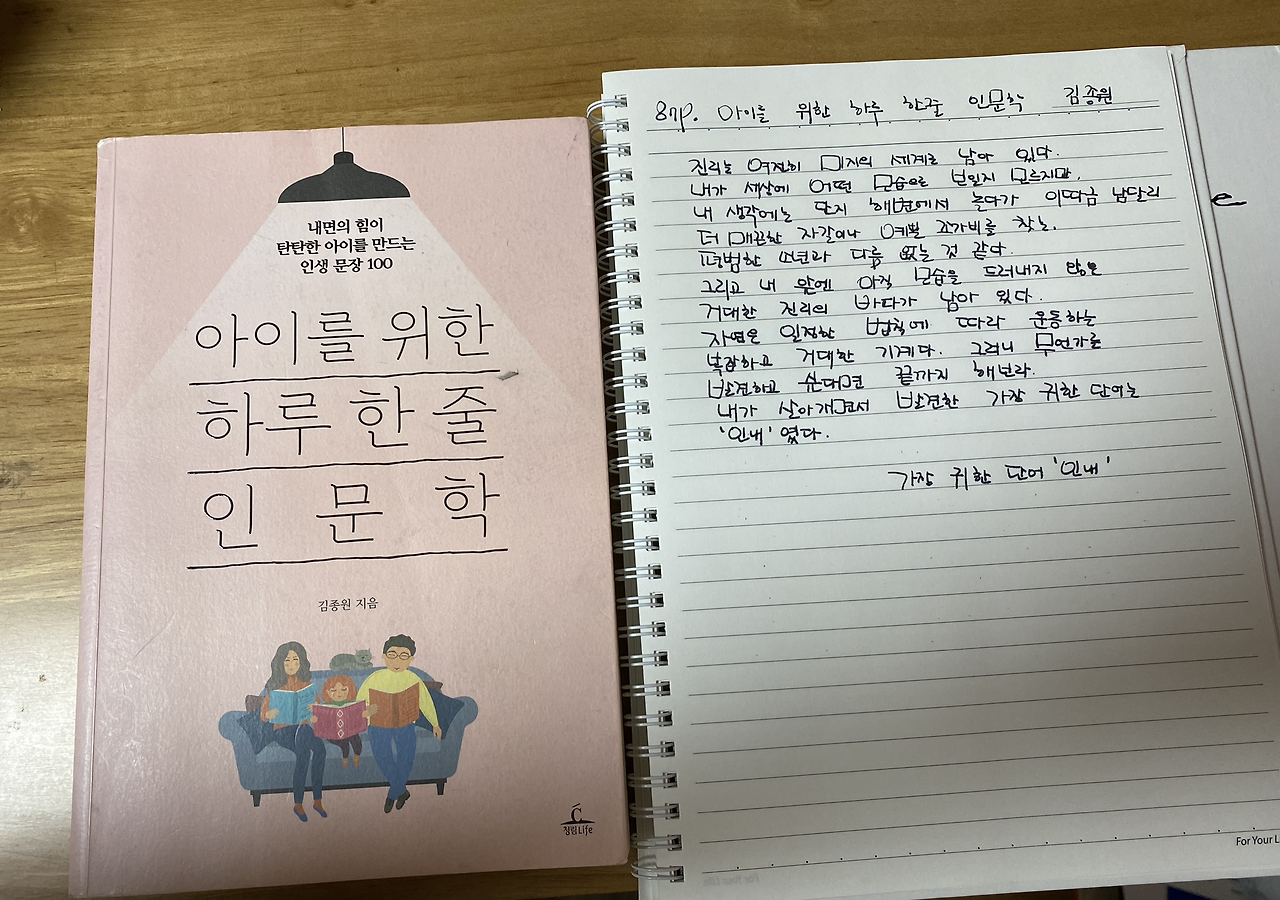 내면의 힘이
탄탄한 아이를 만드는
인생 문장 100
아이를 위한
하루 한 줄
인 문 학
김종원 지음
청림Life
87p. 아이를 위한 하루 한줄 인문학 김종원
진리는 여전히 미지의 세계로 남아 있다.
내가 세상에 어떤 모습으로 보일지 모르지만,
내 생각에는 단지 해변에서 놀다가 이따금 남달리
더 매끈한 자갈이나 예쁜 조가비를 찾는,
평범한 소년과 다름 없는 것 같다.
그리고 내 앞엔 아직 모습을 드러내지 않은
거대한 진리의 바다가 남아 있다.
자연은 일정한 법칙에 따라 운동하는
복잡하고 거대한 기계다. 그러니 무언가를
발견하고 싶다면 끝까지 해보라.
내가 살아가면서 발견한 가장 귀한 단어는
'인내' 였다.
가장 귀한 단어 '인내'
e
For Your L